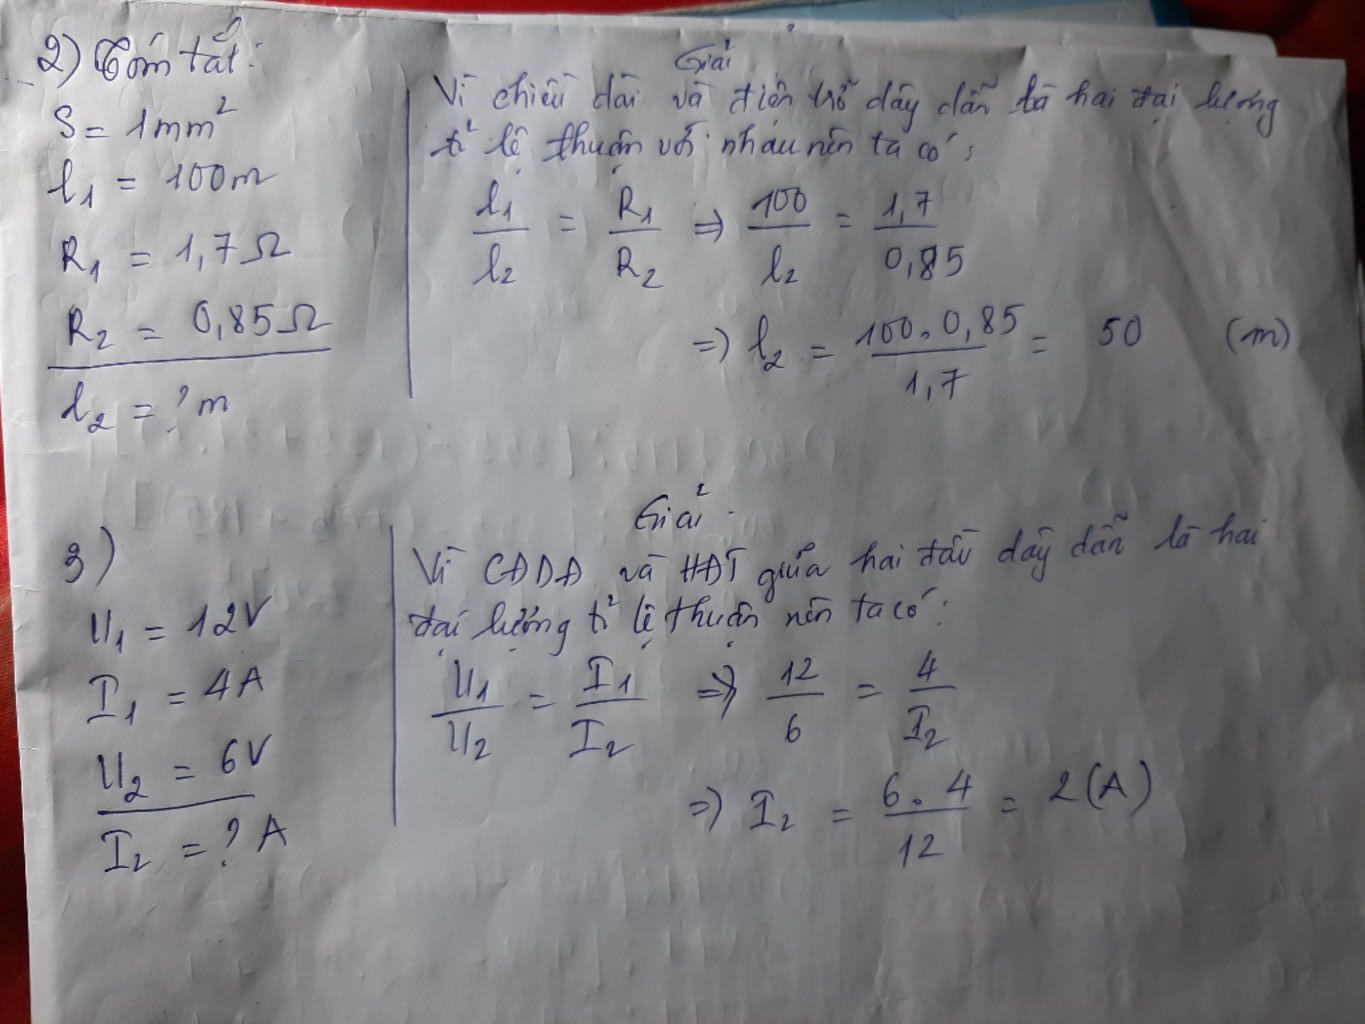 2) Tóm tắt:
S = 1mm²
l₁ = 100m
R₁ = 1,7Ω
R₂ = 0,85Ω
l₂ = ? m
Giải
Vì chiều dài và điện trở dây dẫn là hai đại lượng
tỉ lệ thuận với nhau nên ta có:
l₁/l₂ = R₁/R₂ => 100/l₂ = 1,7/0,85
=> l₂ = 100.0,85/1,7 = 50 (m)
3)
U₁ = 12V
I₁ = 4A
U₂ = 6V
I₂ = ? A
Giải
Vì CĐDĐ và HĐT giữa hai đầu dây dẫn là hai
đại lượng tỉ lệ thuận nên ta có:
U₁/U₂ = I₁/I₂ => 12/6 = 4/I₂
=> I₂ = 6.4/12 = 2(A)